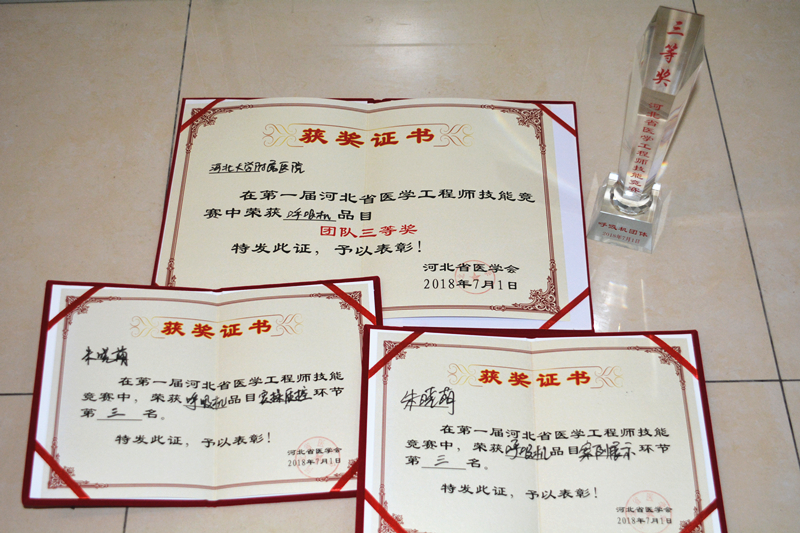 获奖证书
河北大学附属医院
在第一届河北省医学工程师技能竞
赛中荣获呼吸机品目
团队三等奖
特发此证，予以表彰！
河北省医学会
2018年7月1日
三等奖
河北省医学工程师技能竞赛
呼吸机团体
2018年7月1日
获奖证书
朱晓萌
在第一届河北省医学工程师技能
竞赛中，荣获呼吸机品目实操质控环节
第三名。
特发此证，予以表彰！
河北省医学会
2018年7月1日
获奖证书
朱晓萌
在第一届河北省医学工程师技能
竞赛中，荣获呼吸机品目案例展示环节
第三名。
特发此证，予以表彰！
河北省医学会
2018年7月1日